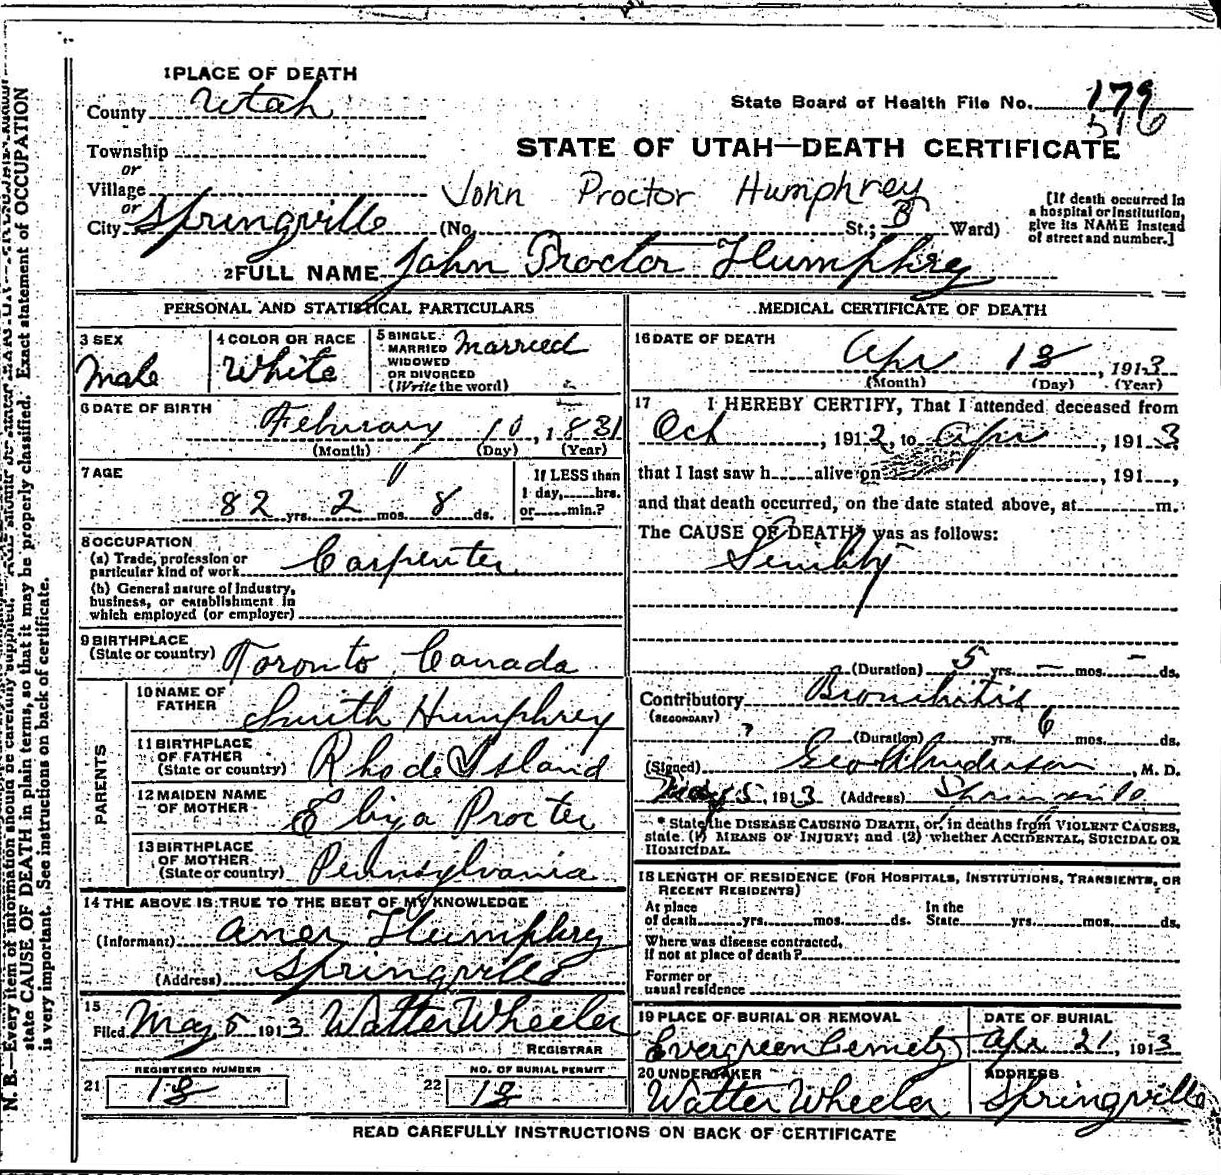 1 PLACE OF DEATH
County Utah
State Board of Health File No. 179
516
Township
or
Village
or
City Springville
STATE OF UTAH—DEATH CERTIFICATE
John Proctor Humphrey
(No. St.; B Ward)
[If death occurred in
a hospital or institution,
give its NAME instead
of street and number.]
2 FULL NAME John Proctor Humphrey
PERSONAL AND STATISTICAL PARTICULARS
3 SEX
Male
4 COLOR OR RACE
White
5 SINGLE
MARRIED
WIDOWED
OR DIVORCED
(Write the word)
Married
6 DATE OF BIRTH
February 10, 1831
(Month) (Day) (Year)
7 AGE
82 yrs. 2 mos. 8 ds.
If LESS than
1 day, hrs.
or min.?
8 OCCUPATION
(a) Trade, profession or
particular kind of work Carpenter
(b) General nature of Industry,
business, or establishment in
which employed (or employer)
9 BIRTHPLACE
(State or country) Toronto Canada
PARENTS
10 NAME OF
FATHER
Smith Humphrey
11 BIRTHPLACE
OF FATHER
(State or country) Rhode Island
12 MAIDEN NAME
OF MOTHER
Eliza Procter
13 BIRTHPLACE
OF MOTHER
(State or country) Pennsylvania
14 THE ABOVE IS TRUE TO THE BEST OF MY KNOWLEDGE
(Informant) Aner Humphrey
(Address) Springville
15
Filed May 5 1913 Walter Wheeler
REGISTRAR
REGISTERED NUMBER
21 18
NO. OF BURIAL PERMIT
22 18
MEDICAL CERTIFICATE OF DEATH
16 DATE OF DEATH
Apr 18, 1913
(Month) (Day) (Year)
17 I HEREBY CERTIFY, That I attended deceased from
Oct, 1912, to Apr, 1913
that I last saw h alive on , 191 ,
and that death occurred, on the date stated above, at m.
The CAUSE OF DEATH* was as follows:
Senility
(Duration) 5 yrs. – mos. – ds.
Contributory Bronchitis
(SECONDARY)
? (Duration) yrs. 6 mos. ds.
(Signed) Geo Anderson, M. D.
May 5, 1913 (Address) Springville
* State the DISEASE CAUSING DEATH, or, in deaths from VIOLENT CAUSES,
state (1) MEANS OF INJURY; and (2) whether ACCIDENTAL, SUICIDAL OR
HOMICIDAL.
18 LENGTH OF RESIDENCE (FOR HOSPITALS, INSTITUTIONS, TRANSIENTS, OR
RECENT RESIDENTS)
At place
of death yrs. mos. ds.
In the
State yrs. mos. ds.
Where was disease contracted,
if not at place of death?
Former or
usual residence
19 PLACE OF BURIAL OR REMOVAL
Evergreen Cemety
DATE OF BURIAL
Apr 21, 1913
20 UNDERTAKER
Walter Wheeler
ADDRESS
Springville
READ CAREFULLY INSTRUCTIONS ON BACK OF CERTIFICATE
N. B.—Every item of information should be carefully supplied.
state CAUSE OF DEATH in plain terms, so that it may be properly classified. Exact statement of OCCUPATION
is very important. See instructions on back of certificate.